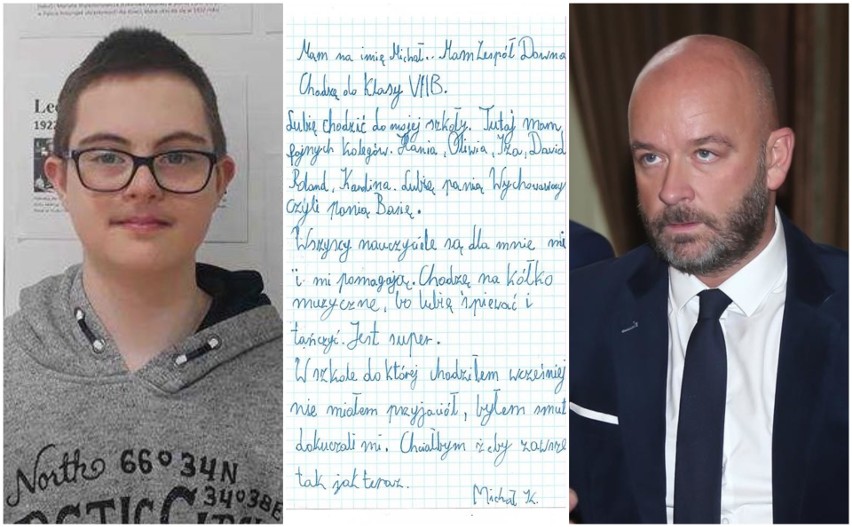 Lec
1922
North 66034N
34038E
Mam na imię Michał.. Mam Zespół Downa
Chodzę do klasy VIIB.
Lubię chodzić do mojej szkoły. Tutaj mam
fajnych kolegów. Hania, Oliwia, Iza, David
Roland, Karolina. Lubię panią Wychowawczy
czyli panią Basię.
Wszyscy nauczyciele są dla mnie mi
i mi pomagają. Chodzę na kółko
muzyczne, bo lubię śpiewać i
tańczyć. Jest super.
W szkole do której chodziłem wcześniej
nie miałem przyjaciół, byłem smut
dokuczali mi. Chciałbym żeby zawsze
tak jak teraz.
Michał K.